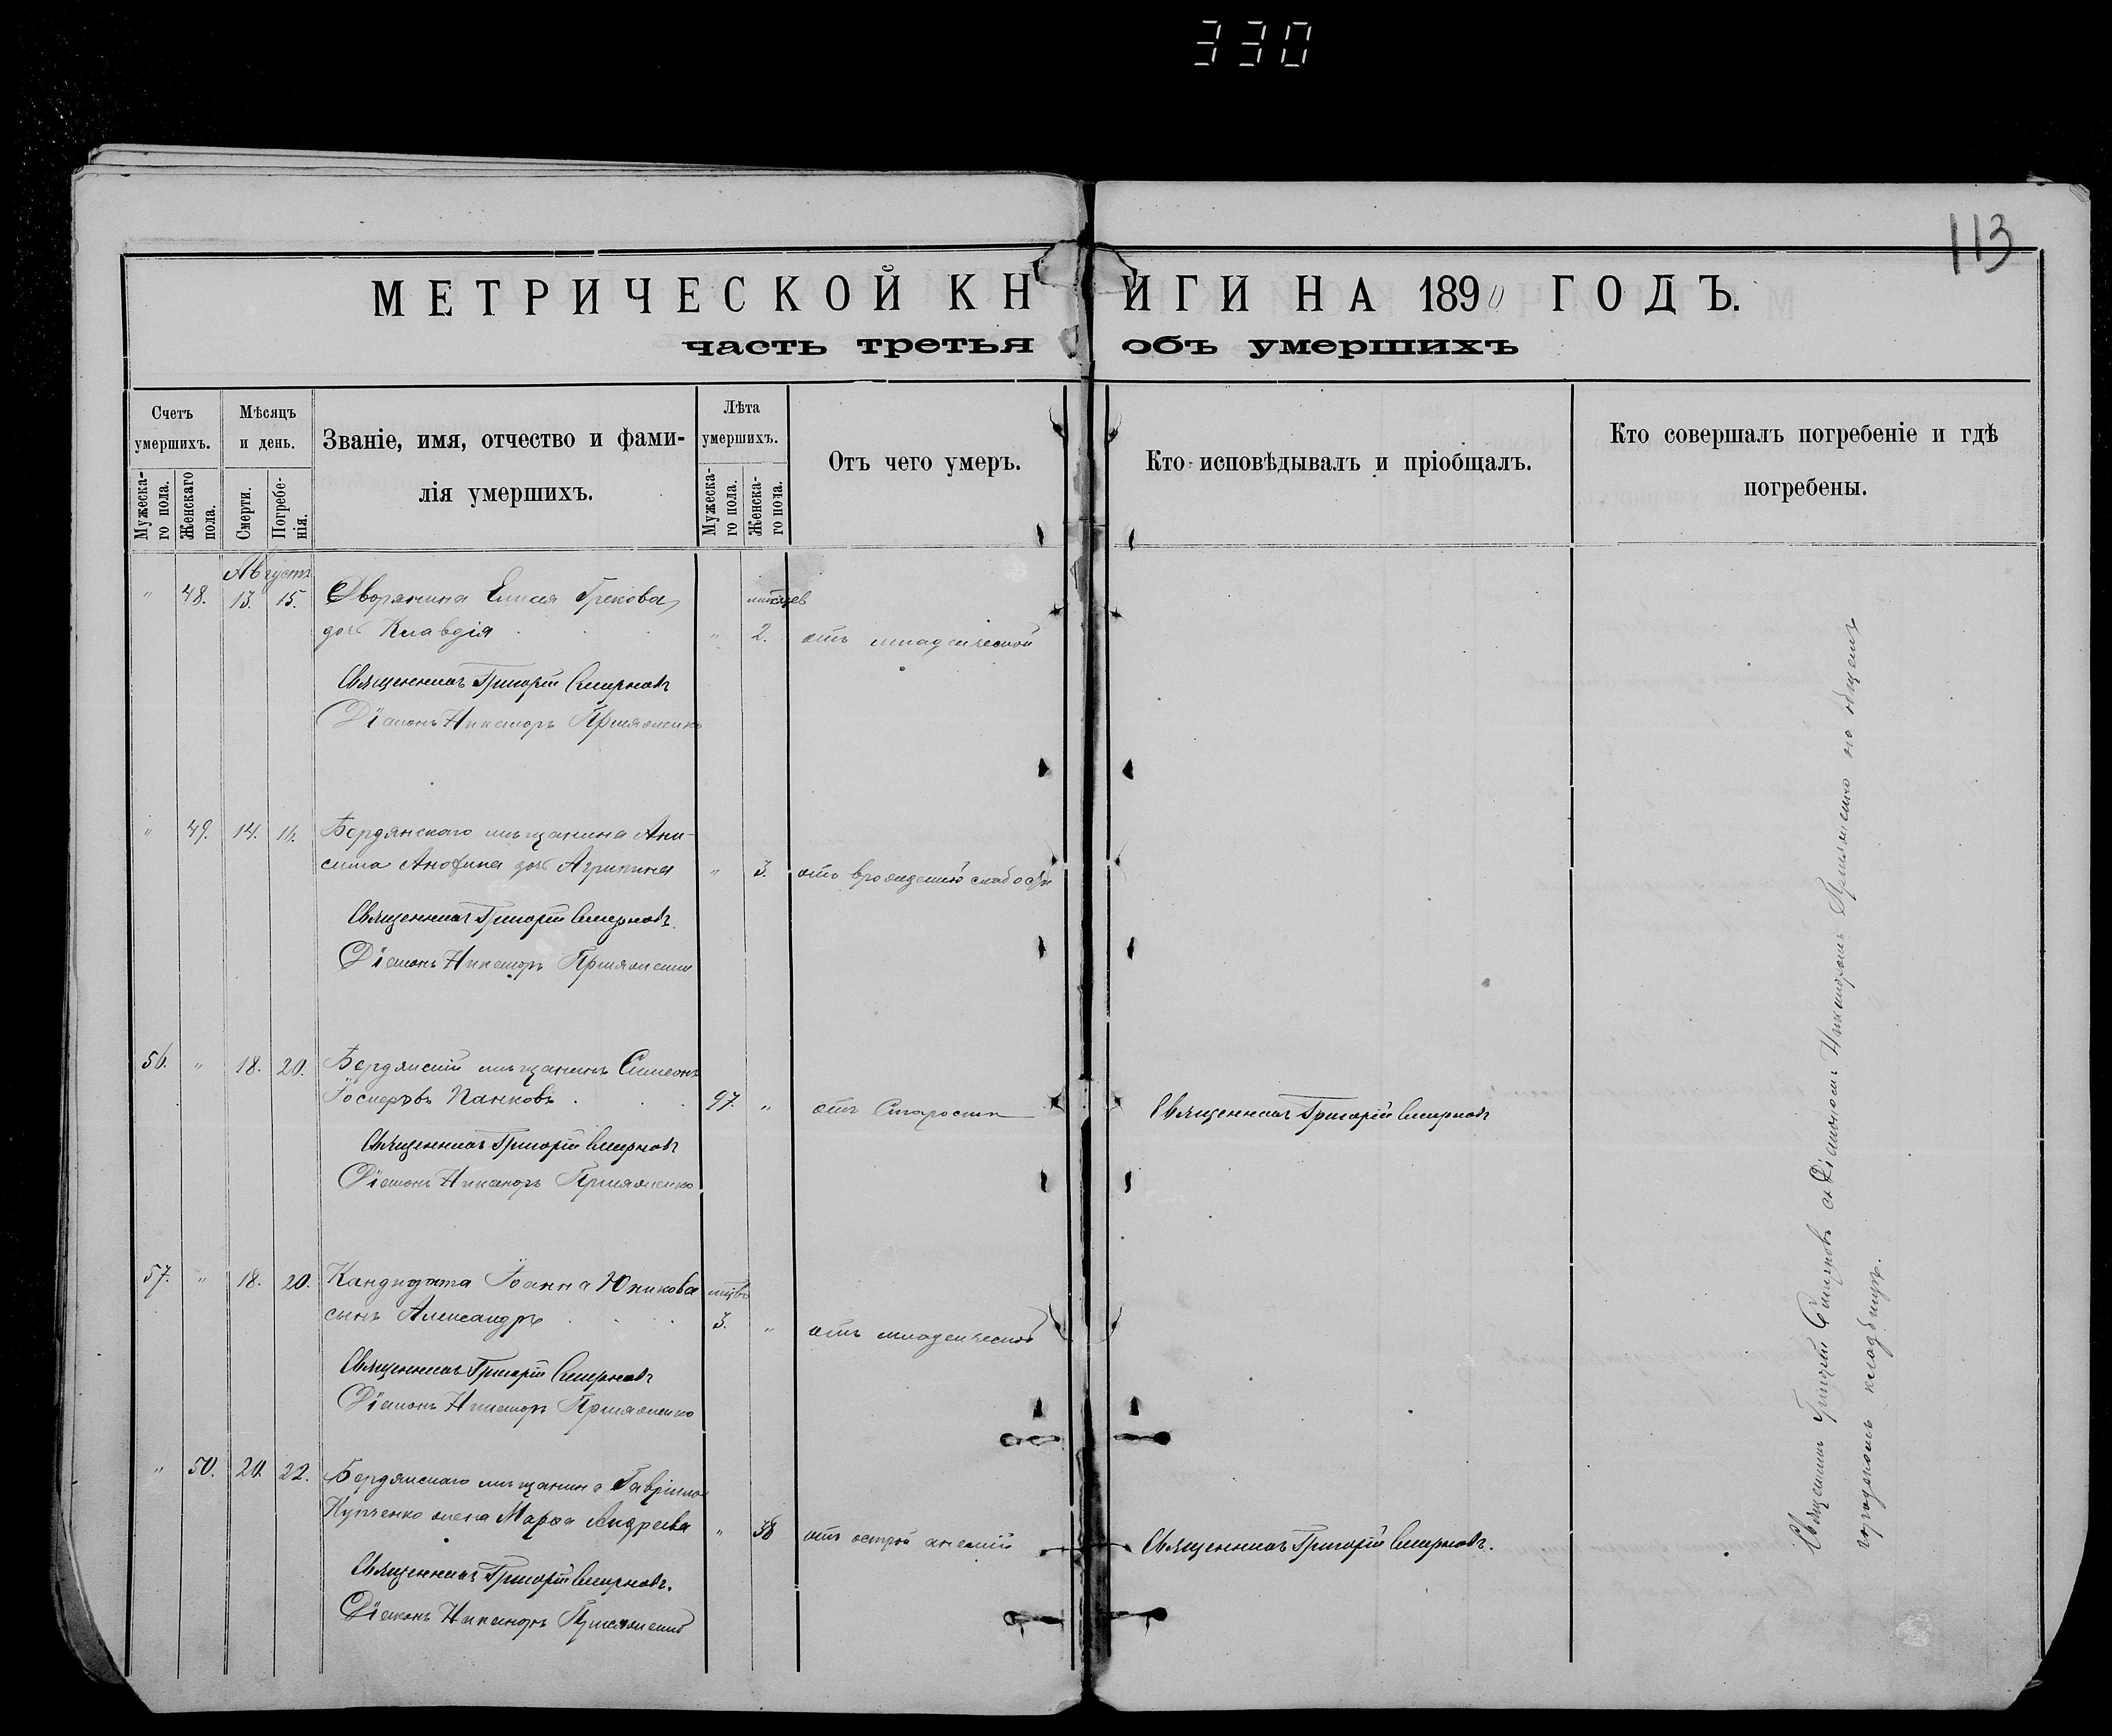 330
113
МЕТРИЧЕСКОЙ КНИГИ НА 1890 ГОДЪ.
часть третья объ умершихъ
Счетъ умершихъ.
Мужеска-го пола.
Женскаго пола.
Мѣсяцъ и день.
Смерти.
Погребе-нія.
Званіе, имя, отчество и фами-
лія умершихъ.
Лѣта умершихъ.
Мужеска-го пола.
Женска-го пола.
Отъ чего умеръ.
Кто исповѣдывалъ и пріобщалъ.
Кто совершалъ погребеніе и гдѣ
погребены.
Августъ
" 48. 13. 15. Дворянина Елисея Грекова
дочь Клавдія " 2. отъ младенческой
Священникъ Григорій Смирновъ
Діаконъ Никаноръ
" 49. 14. 16. Бердянскаго мѣщанина Ани-
сима дочь Агрипина " 3. отъ врожденной слабости
Священникъ Григорій Смирновъ.
Діаконъ Никаноръ
56. " 18. 20. Бердянскій мѣщанинъ Симеонъ
Іосифовъ Панковъ 97. " отъ старости Священникъ Григорій Смирновъ
Священникъ Григорій Смирновъ
Діаконъ Никаноръ
57. " 18. 20. Кандидата Іоанна Юникова
сынъ Александръ 3. " отъ младенческой
Священникъ Григорій Смирновъ
Діаконъ Никаноръ
" 50. 20. 22. Бердянскаго мѣщанина Гавріила
Купченко жена Марфа Андреева " 38 отъ острой анеміи Священникъ Григорій Смирновъ.
Священникъ Григорій Смирновъ.
Діаконъ Никаноръ
Священникъ Григорій Смирновъ съ Діакономъ Никаноромъ на общемъ
городскомъ кладбищѣ.